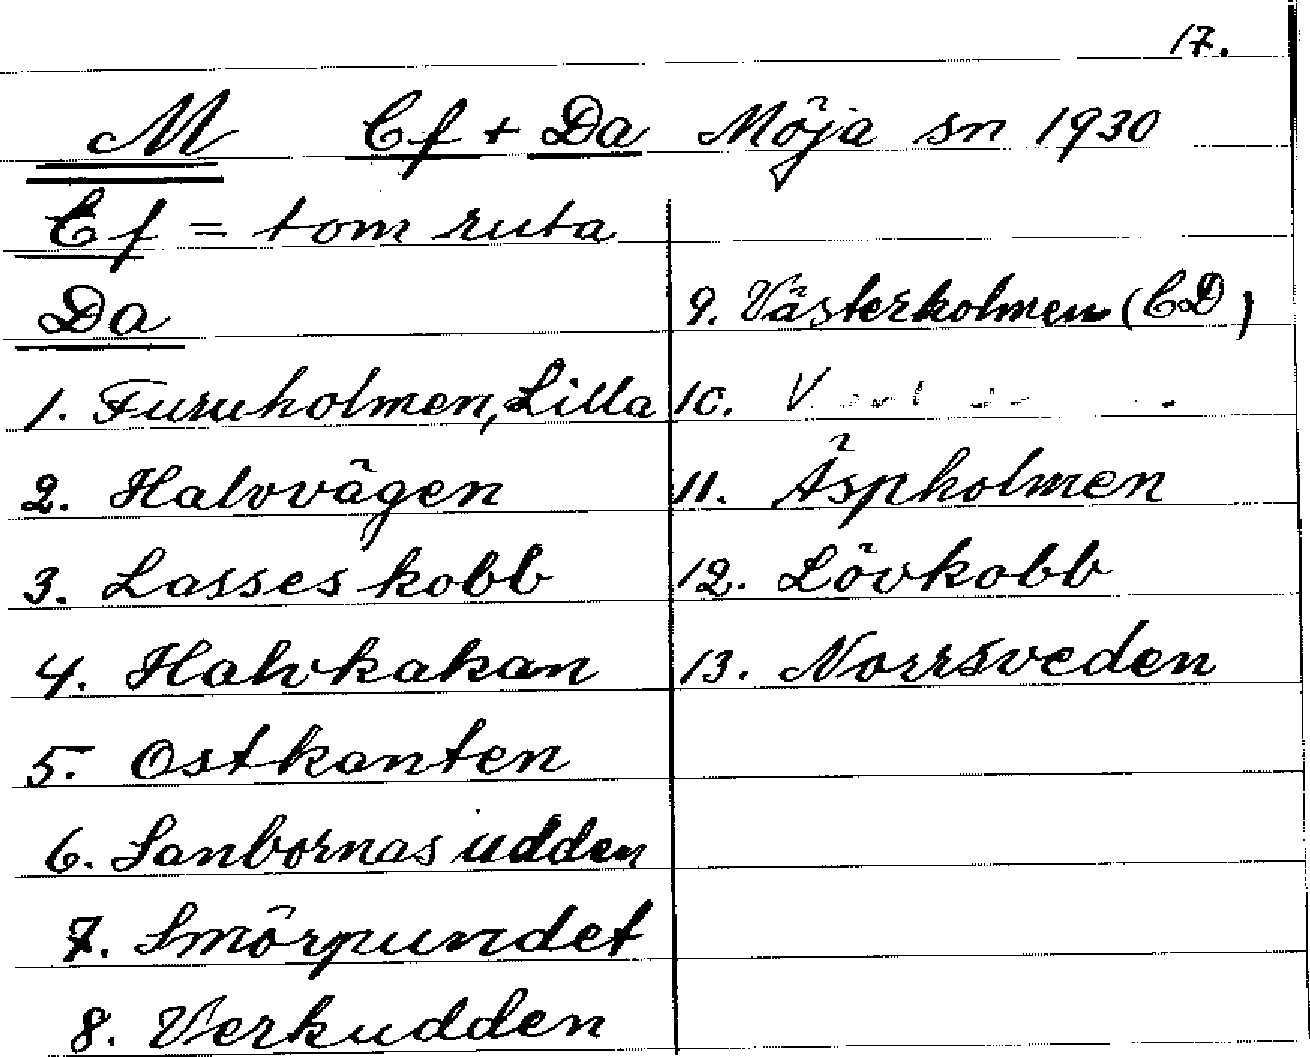 17.
M Cf + Da Möja sn 1930
Cf = tom ruta
Da
1. Furuholmen, Lilla
2. Halvvägen
3. Lasses kobb
4. Halvkakan
5. Ostkanten
6. Sanbornas udden
7. Smörpundet
8. Verkudden
9. Västerholmen (CD)
10.
11. Äspholmen
12. Lövkobb
13. Norrsveden